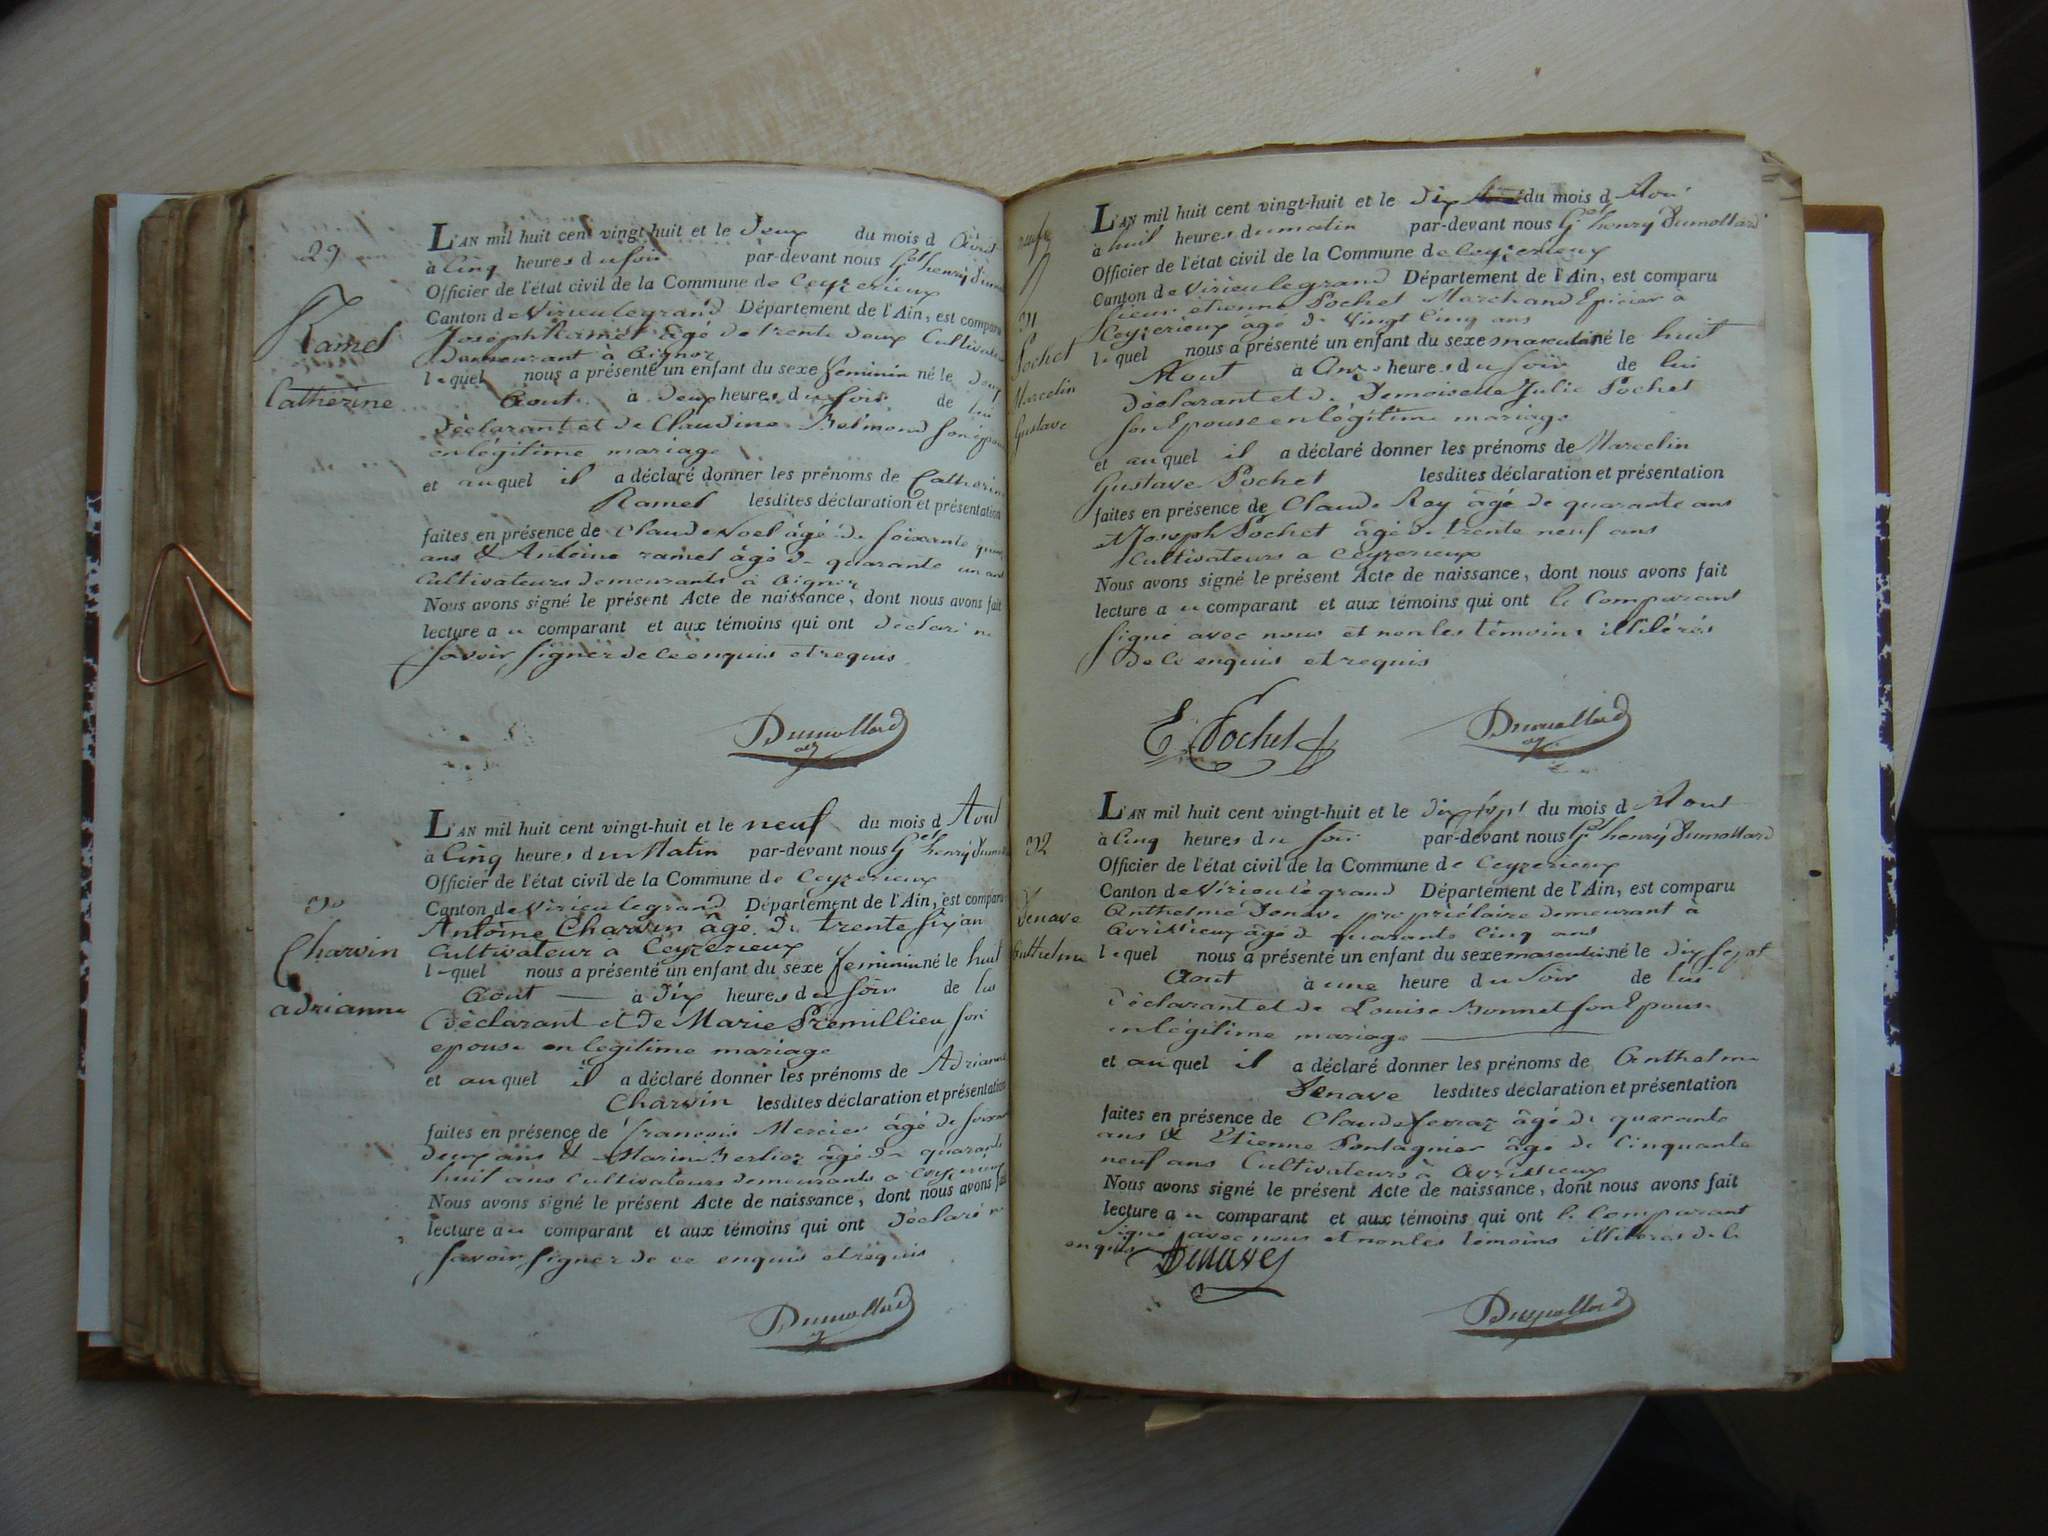 29
Ramel
Catherine
L'AN mil huit cent vingt-huit et le deux du mois d Aout
à Cinq heures du soir par-devant nous Gel henry Dumo
Officier de l'état civil de la Commune de Ceyzerieux
Canton de Virieulegrand Département de l'Ain, est comparu
Joseph Ramel âgé de trente deux Cultivateur
Demeurant à Aignoz
lequel nous a présenté un enfant du sexe feminin né le deux
Aout à deux heures du soir de lui
déclarant et de Claudine Belmond son épouse
en légitime mariage
et auquel il a déclaré donner les prénoms de Catherine
Ramel lesdites déclaration et présentation
faites en présence de Claude Noel âgé de soixante
ans & Antoine ramel âgé de quarante un ans
Cultivateurs demeurants à Aignoz
Nous avons signé le présent Acte de naissance, dont nous avons fait
lecture au comparant et aux témoins qui ont déclaré ne
savoir signer de ce enquis et requis
Dumollard
30
Charvin
adrianne
L'AN mil huit cent vingt-huit et le neuf du mois d Aout
à Cinq heures du Matin par-devant nous Gel henry Dumo
Officier de l'état civil de la Commune de Ceyzerieux
Canton de Virieulegrand Département de l'Ain, est comparu
Antoine Charvin âgé de trente six an
Cultivateur à Ceyzerieux
lequel nous a présenté un enfant du sexe feminin né le huit
Aout à dix heures du soir de lui
déclarant et de Marie Premillieu son
epouse en légitime mariage
et auquel il a déclaré donner les prénoms de Adrianne
Charvin lesdites déclaration et présentation
faites en présence de françois Mercier âgé de soixante
deux ans & Marin Berlioz âgé de quarante
huit ans Cultivateurs demeurants a Ceyzerieux
Nous avons signé le présent Acte de naissance, dont nous avons fait
lecture au comparant et aux témoins qui ont déclaré ne
savoir signer de ce enquis et requis
Dumollard
neuf
31
Pochet
Marcelin
Gustave
L'AN mil huit cent vingt-huit et le dix du mois d Aout
à huit heures du matin par-devant nous Gel henry Dumollard
Officier de l'état civil de la Commune de Ceyzerieux
Canton de Virieulegrand Département de l'Ain, est comparu
sieur etienne Pochet Marchand Epicier a
Ceyzerieux âgé de vingt Cinq ans
lequel nous a présenté un enfant du sexe masculin né le huit
Aout à Onze heures du soir de lui
déclarant et de Demoiselle Julie Pochet
son Epouse en légitime mariage
et auquel il a déclaré donner les prénoms de Marcelin
Gustave Pochet lesdites déclaration et présentation
faites en présence de Claude Roy âgé de quarante ans
et Joseph Pochet âgé de trente neuf ans
Cultivateurs a Ceyzerieux
Nous avons signé le présent Acte de naissance, dont nous avons fait
lecture au comparant et aux témoins qui ont le Comparant
signé avec nous et non les témoins illitérés
de ce enquis et requis
E. Pochet Dumollard
32
Denave
Anthelme
L'AN mil huit cent vingt-huit et le dix sept du mois d Aout
à Cinq heures du soir par-devant nous Gel henry Dumollard
Officier de l'état civil de la Commune de Ceyzerieux
Canton de Virieu légrand Département de l'Ain, est comparu
Anthelme Denave propriétaire demeurant à
Avrissieux âgé de quarante Cinq ans
lequel nous a présenté un enfant du sexe masculin né le dix sept
Aout à une heure du soir de lui
déclarant et de Louise Bonnet son Epouse
en légitime mariage
et auquel il a déclaré donner les prénoms de Anthelme
Denave lesdites déclaration et présentation
faites en présence de Claude ferraz âgé de quarante
ans & Etienne Pontagnier âgé de Cinquante
neuf ans Cultivateurs à Avrissieux
Nous avons signé le présent Acte de naissance, dont nous avons fait
lecture au comparant et aux témoins qui ont le Comparant
signé avec nous et non les témoins illitérés de ce
enquis Denave
Dumollard